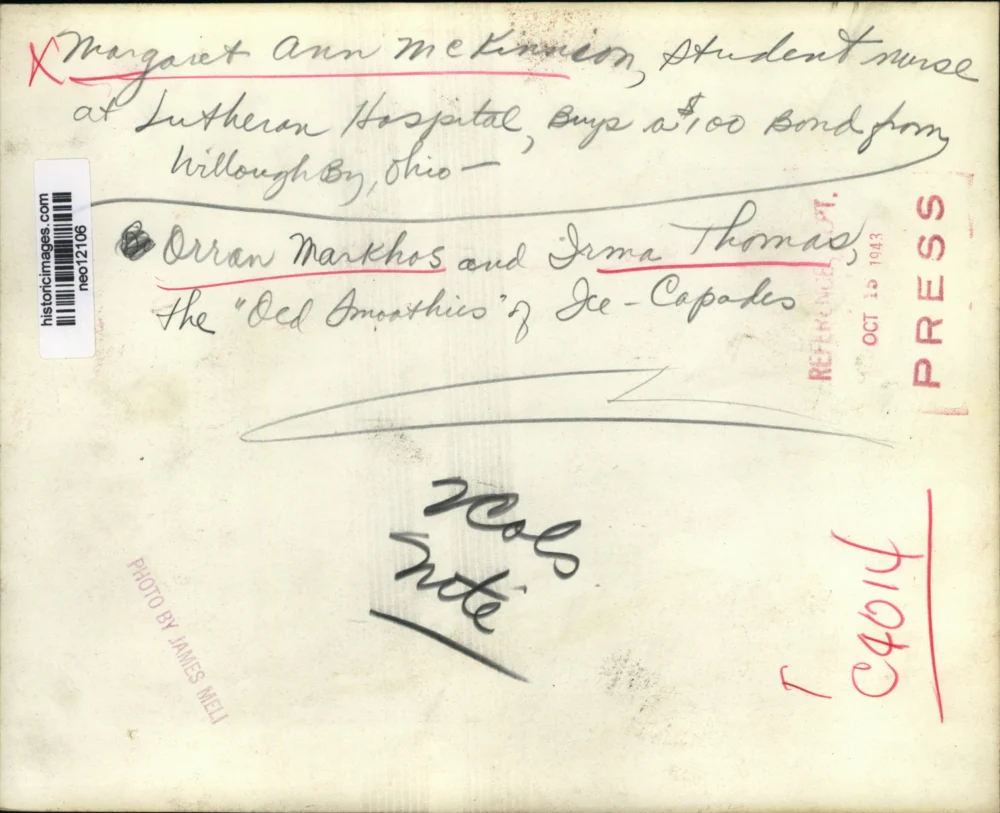 X Margaret Ann McKinnon, student nurse
at Lutheran Hospital, Buys a $100 Bond from
WilloughBy, Ohio —
Orran Markhos and Irma Thomas,
the "Old Smoothies" of Ice-Capades
2 Cols
note
historicimages.com
neo12106
PHOTO BY JAMES MELI
REFERENCE DEPT.
OCT 15 1943
PRESS
T
C4014